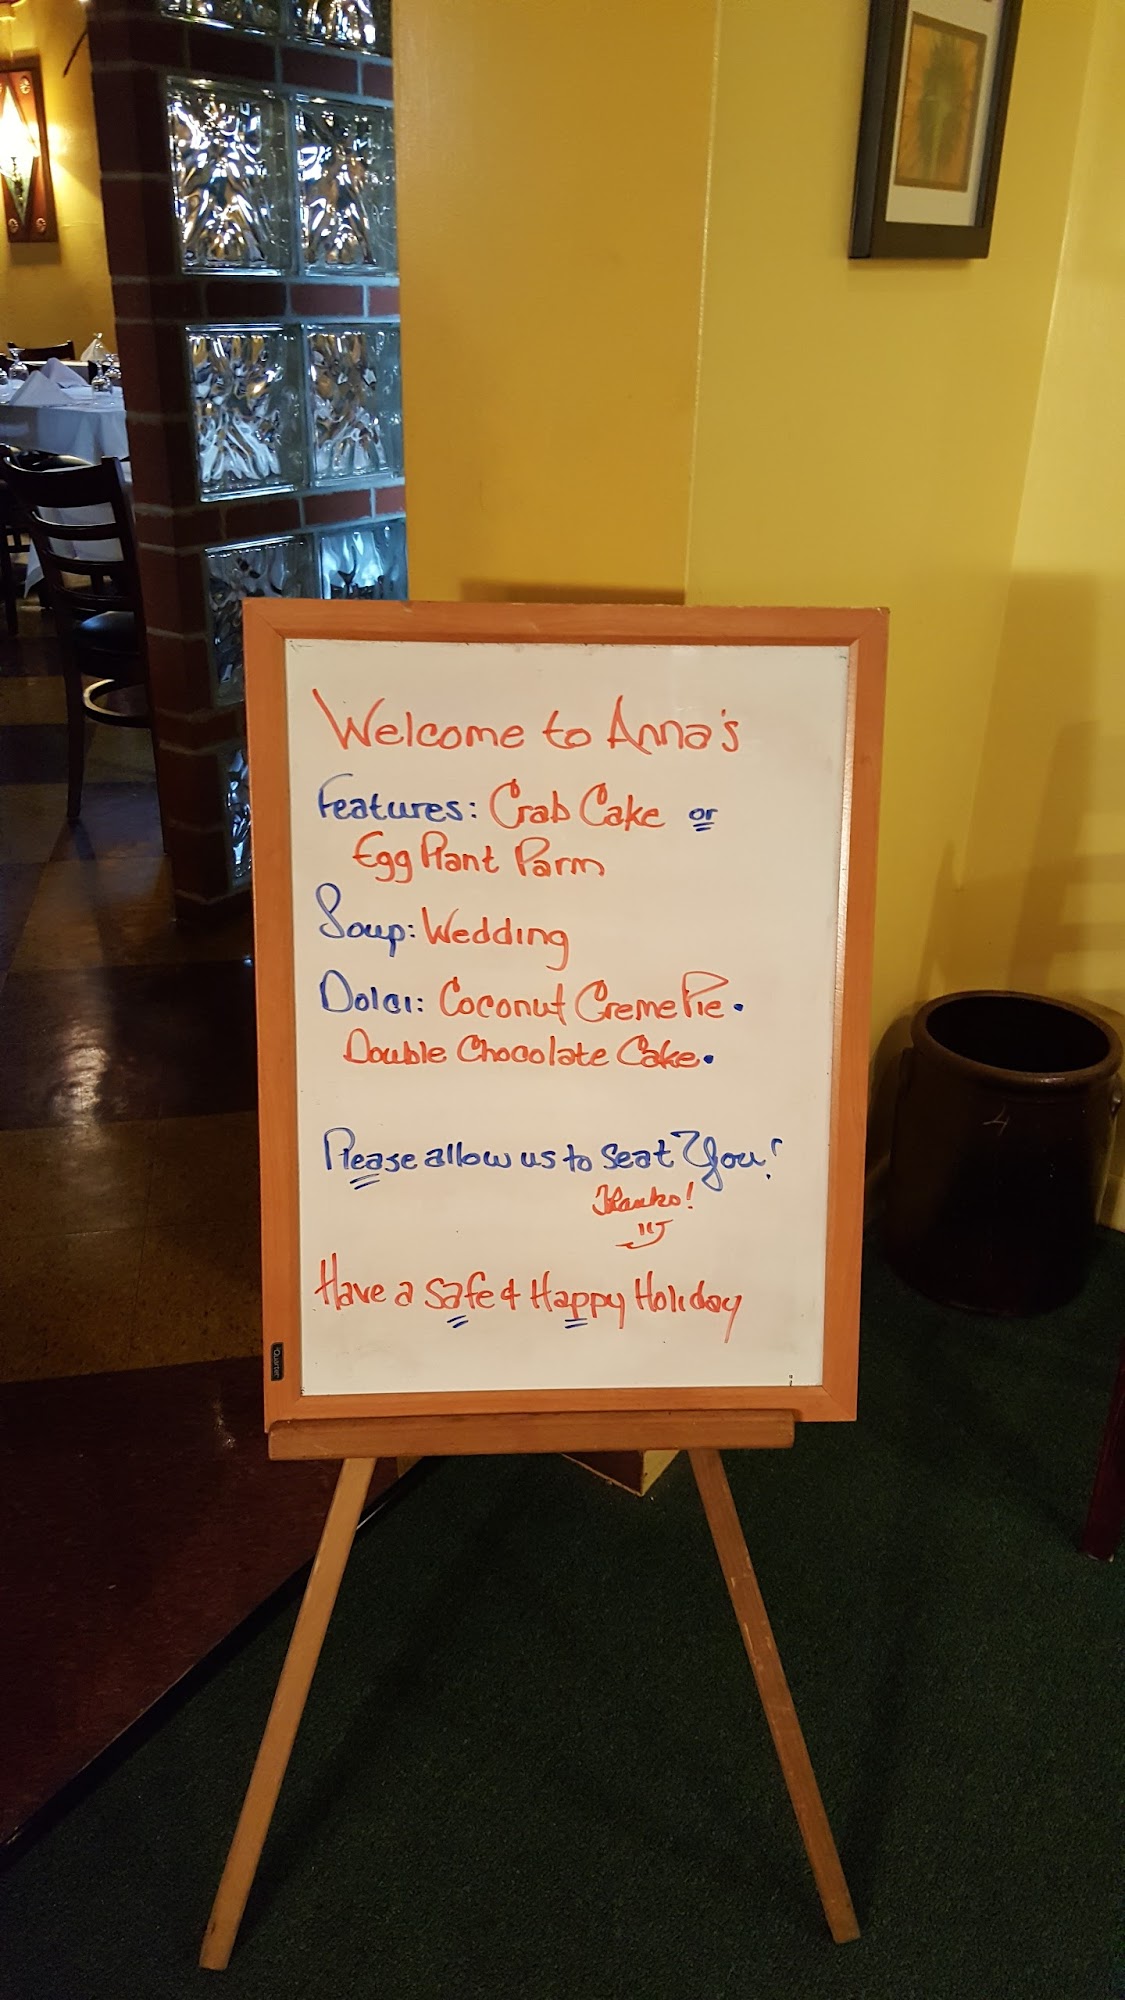 Welcome to Anna's
Features: Crab Cake or
Egg Plant Parm
Soup: Wedding
Dolci: Coconut Creme Pie.
Double Chocolate Cake.
Please allow us to seat You!
Thanks!
Have a Safe & Happy Holiday
Quartet
4